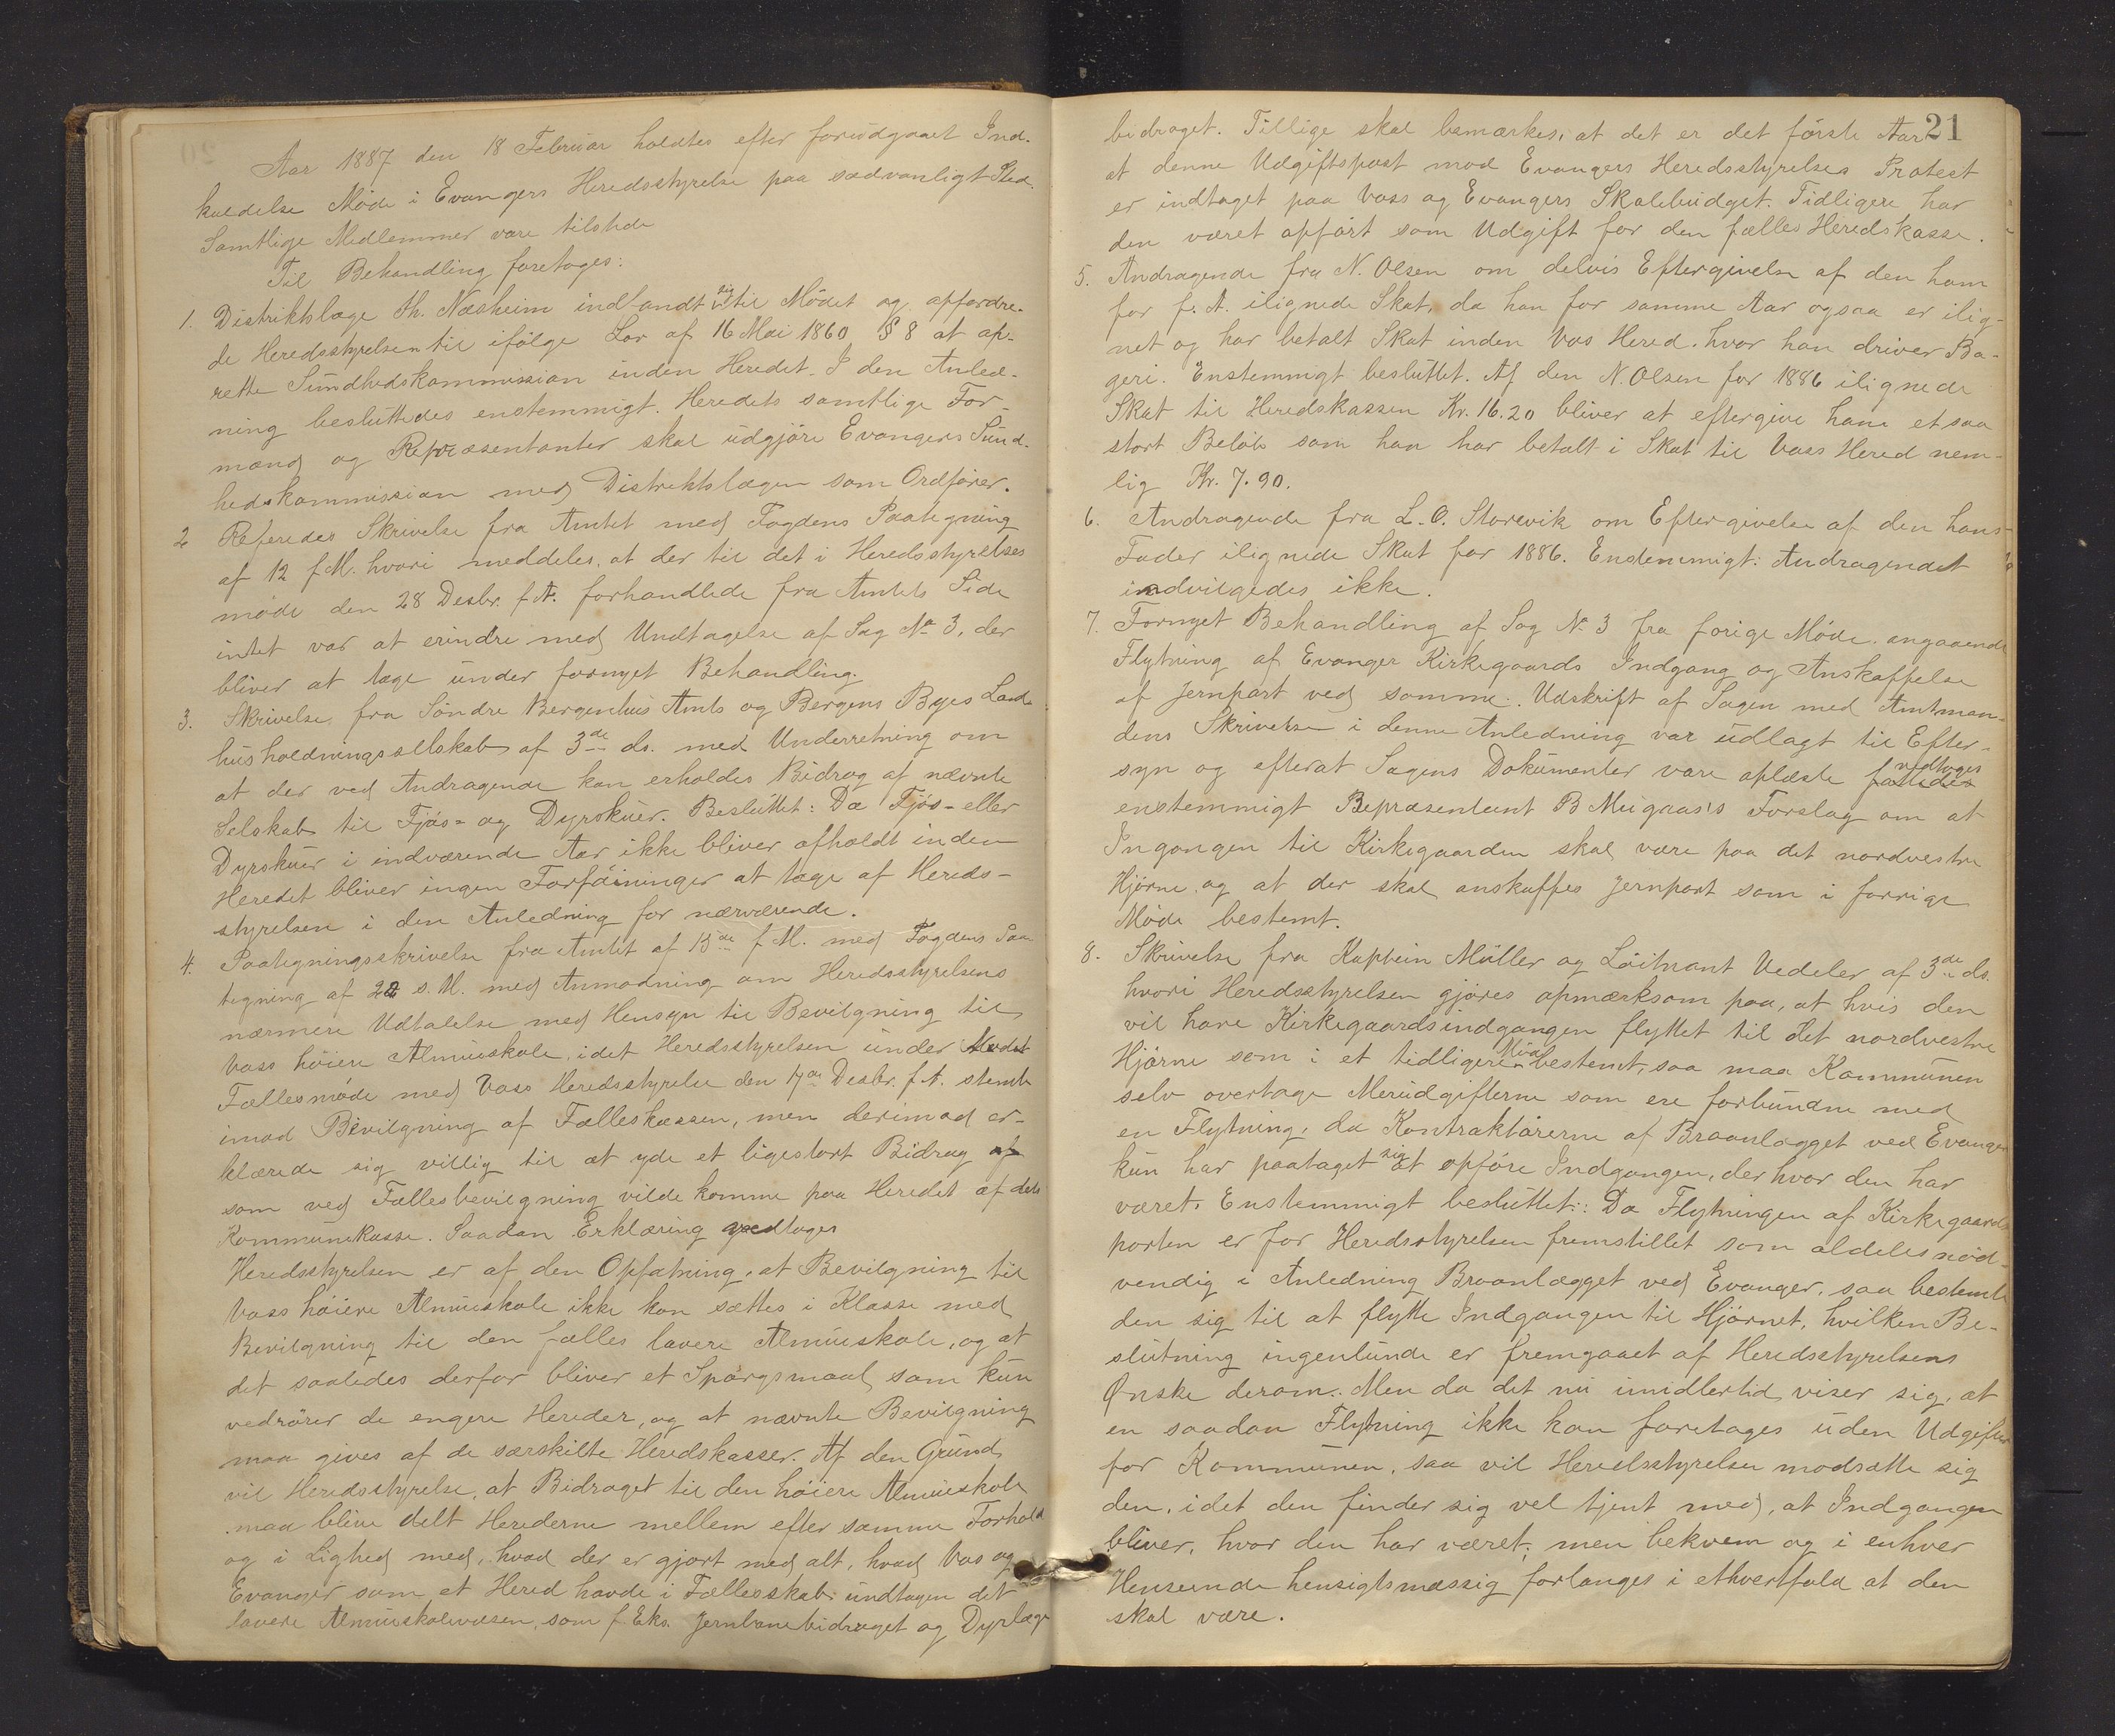 Aar 1887 den 18 Februar holdtes efter forudgaaet Ind-
kaldelse Møde i Evangers Heredsstyrelse paa sædvanligt Sted.
Samtlige Medlemmer vare tilstede
Til Behandling foretoges:
1. Distriktslæge Th. Næsheim indfandt sig til Mødet og opfordre-
de Heredsstyrelsen til ifølge Lov af 16 Mai 1860 § 8 at op-
rette Sundhedskommission inden Heredet. I den Anled-
ning besluttedes enstemmigt. Heredets samtlige For-
mænd og Repræsentanter skal udgjøre Evangers Sund-
hedskommission med Distriktslægen som Ordfører.
2 Referedes Skrivelse fra Amtet med Fogdens Paategning
af 12 f.M. hvori meddeles, at der til det i Heredsstyrelses
møde den 28 Desbr. f.A. forhandlede fra Amtets Side
intet var at erindre med Undtagelse af Sag No 3, der
bliver at tage under fornyet Behandling.
3. Skrivelse fra Søndre Bergenhus Amts og Bergens Byes Land-
husholdningsselskab af 3de ds. med Underretning om
at der ved Andragende kan erholdes Bidrag af nævnte
Selskab til Fjøs- og Dyrskuer. Besluttet: Da Fjøs- eller
Dyrskuer i indværende Aar ikke bliver afholdt inden
Heredet bliver ingen Forføininger at tage af Hereds-
styrelsen i den Anledning for nærværende.
4. Paategningsskrivelse fra Amtet af 15de f.M. med Fogdens Paa
tegning af 22 s.M. med Anmodning om Heredsstyrelsens
nærmere Udtalelse med Hensyn til Bevilgning til
Voss høiere Almueskole, idet Heredsstyrelsen under Mødet
Fællesmøde med Voss Heredsstyrelse den 17de Desbr. f.A. stemte
imod Bevilgning af Fælleskassen, men derimod er-
klærede sig villig til at yde et ligestort Bidrag af
som ved Fællesbevilgning vilde komme paa Heredet af dets
Kommunekasse. Saadan Erklæring vedtoges
Heredsstyrelsen er af den Opfatning, at Bevilgning til
Voss høiere Almueskole ikke kan sættes i Klasse med
Bevilgning til den fælles lavere Almueskole, og at
det saaledes derfor bliver et Spørgsmaal som kun
vedrører de engere Hereder, og at nævnte Bevilgning
maa gives af de særskilte Heredskasser. Af den Grund
vil Heredsstyrelse, at Bidraget til den høiere Almueskole
maa blive delt Herederne mellem efter samme Forhold
og i Lighed med, hvad der er gjort med alt, hvad Vos og
Evanger som et Hered havde i Fællesskab undtagen det
lavere Almueskolevæsen, som f.Eks. Jernbanebidraget og Dyrlæge
21
bidraget. Tillige skal bemærkes, at det er det første Aar
at denne Udgiftspost mod Evangers Heredsstyrelses Protest
er indtaget paa Voss og Evangers Skolebudget. Tidligere har
den været opført som Udgift for den fælles Heredskasse.
5. Andragende fra N. Olsen om delvis Eftergivelse af den ham
for f.A. ilignede Skat, da han for samme Aar ogsaa er ilig-
net og har betalt Skat inden Vos Hered. hvor han driver Ba-
geri. Enstemmigt besluttet. Af den N. Olsen for 1886 ilignede
Skat til Heredskassen Kr. 16.20 bliver at eftergive ham et saa
stort Beløb som han har betalt i Skat til Voss Hered nem-
lig Kr. 7.90.
6. Andragende fra L. O. Storevik om Eftergivelse af den hans
Fader ilignede Skat for 1886. Enstemmigt: Andragendet
indvilgedes ikke.
7. Fornyet Behandling af Sag No 3 fra forige Møde, angaaende
Flytning af Evanger Kirkegaards Indgang og Anskaffelse
af Jernport ved samme. Udskrift af Sagen med Amtman-
dens Skrivelse i denne Anledning var udlagt til Efter-
syn og efterat Sagens Dokumenter vare oplæste fattedes vedtoges
enstemmigt Repræsentant B Mugaas's Forslag om at
Ingangen til Kirkegaarden skal være paa det nordvestre
Hjørne, og at der skal anskaffes Jernport som i forrige
Møde bestemt.
8. Skrivelse fra Kaptein Müller og Løitnant Vedeler af 3de ds.
hvori Heredsstyrelsen gjøres opmærksom paa, at hvis den
vil have Kirkegaardsindgangen flyttet til det nordvestre
Hjørne som i et tidligere Møde bestemt, saa maa Kommunen
selv overtage Merudgifterne som ere forbundne med
en Flytning, da Kontraktørerne af Broanlægget ved Evanger
kun har paataget sig at opføre Indgangen, der hvor den har
været. Enstemmigt besluttet:: Da Flytningen af Kirkegaards
porten er for Heredsstyrelsen fremstillet som aldeles nød-
vendig i Anledning Broanlægget ved Evanger, saa bestemte
den sig til at flytte Indgangen til Hjørnet, hvilken Be-
slutning ingenlunde er fremgaaet af Heredsstyrelsens
Ønske derom. Men da det nu imidlertid viser sig, at
en saadan Flytning ikke kan foretages uden Udgifter
for Kommunen, saa vil Heredsstyrelsen modsætte sig
den, idet den finder sig vel tjent med, at Indgangen
bliver, hvor den har været; men bekvem og i enhver
Henseende hensigtsmæssig forlanges i ethvertfald at den
skal være.